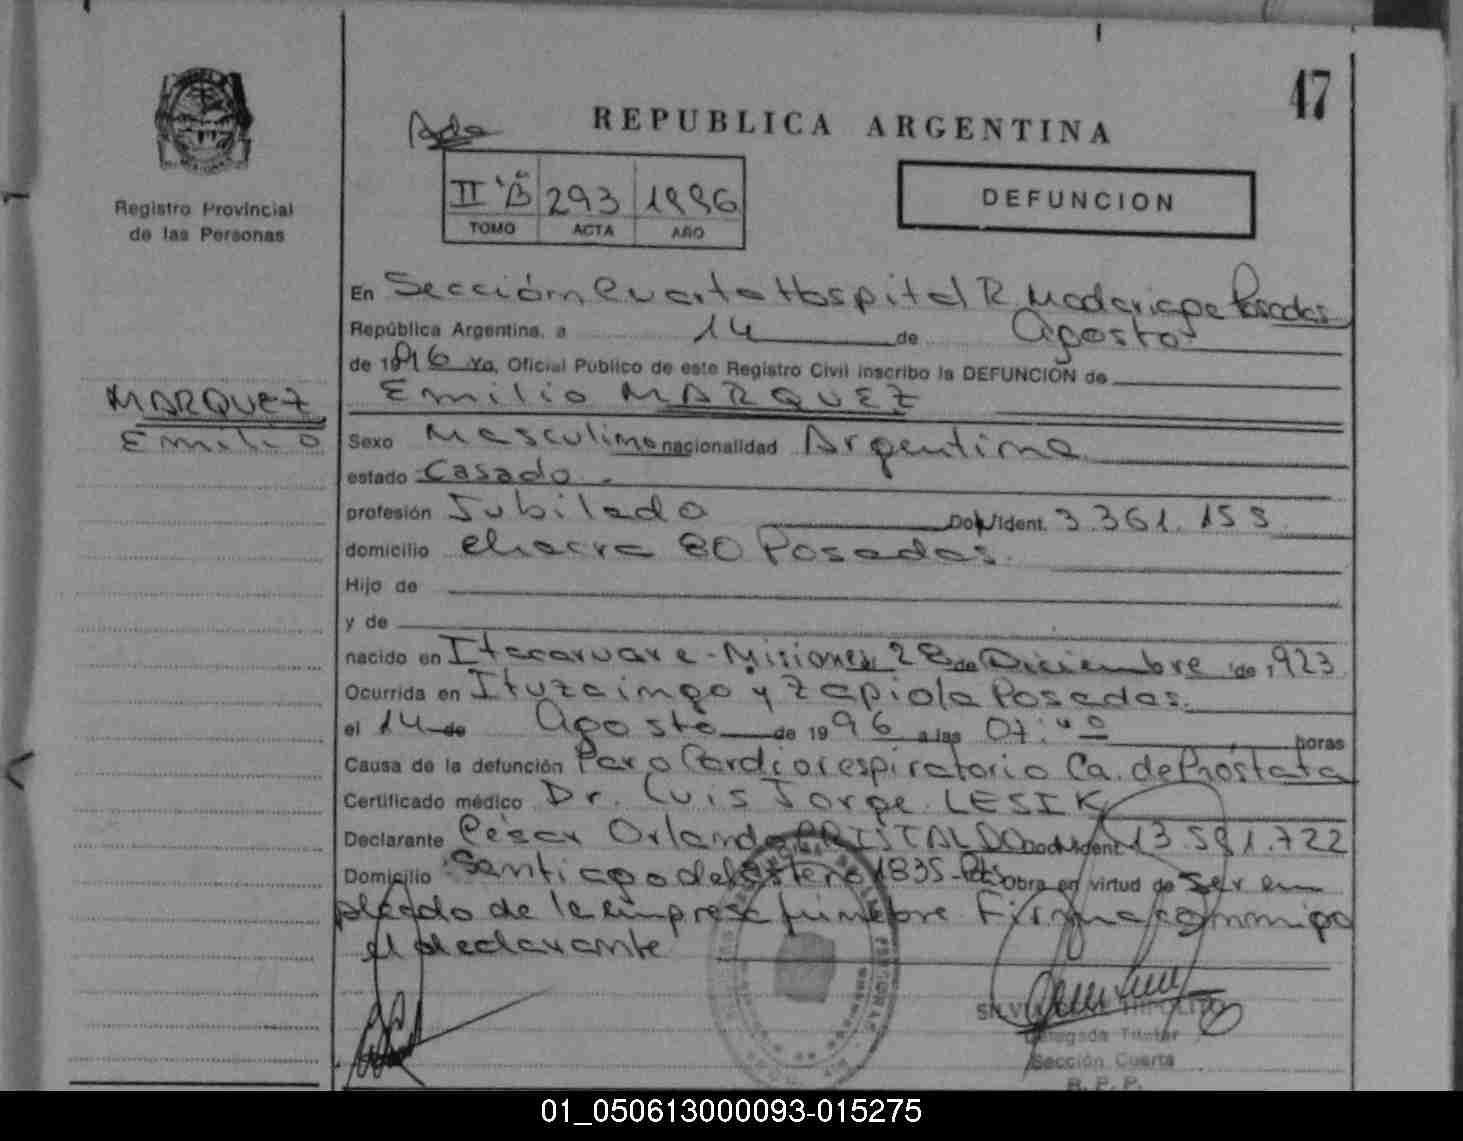 47
Ado
REPUBLICA ARGENTINA
II "B" 293 1996
TOMO ACTA AÑO
DEFUNCION
Registro Provincial
de las Personas
En Sección Cuarta Hospital R. Madariaga Posadas
República Argentina, a 14 de Agosto
de 1996 Yo, Oficial Público de este Registro Civil inscribo la DEFUNCION de
MARQUEZ
Emilio
Emilio MARQUEZ
Sexo Masculino nacionalidad Argentina
estado Casado.
profesión Jubilado Doc. Ident. 3.361.155
domicilio chacra 80 Posadas.
Hijo de
y de
nacido en Itacaruare-Misiones 28 de Diciembre de 1923
Ocurrida en Ituzaingo y Zapiola Posadas.
el 14 de Agosto de 1996 a las 07:40 horas
Causa de la defunción Paro Cardiorespiratorio Ca. de Prostata
Certificado médico Dr. Luis Jorge LESIK
Declarante César Orlando CRISTALDO Doc. Ident. 13.581.722
Domicilio Santiago del Estero 1835-Pdas Obra en virtud de ser em
pleado de la empresa funebre Firma conmigo
el declarante
SILVIA HIPOLITO
Delegada Titular
Sección Cuarta
R. P. P.
01_050613000093-015275